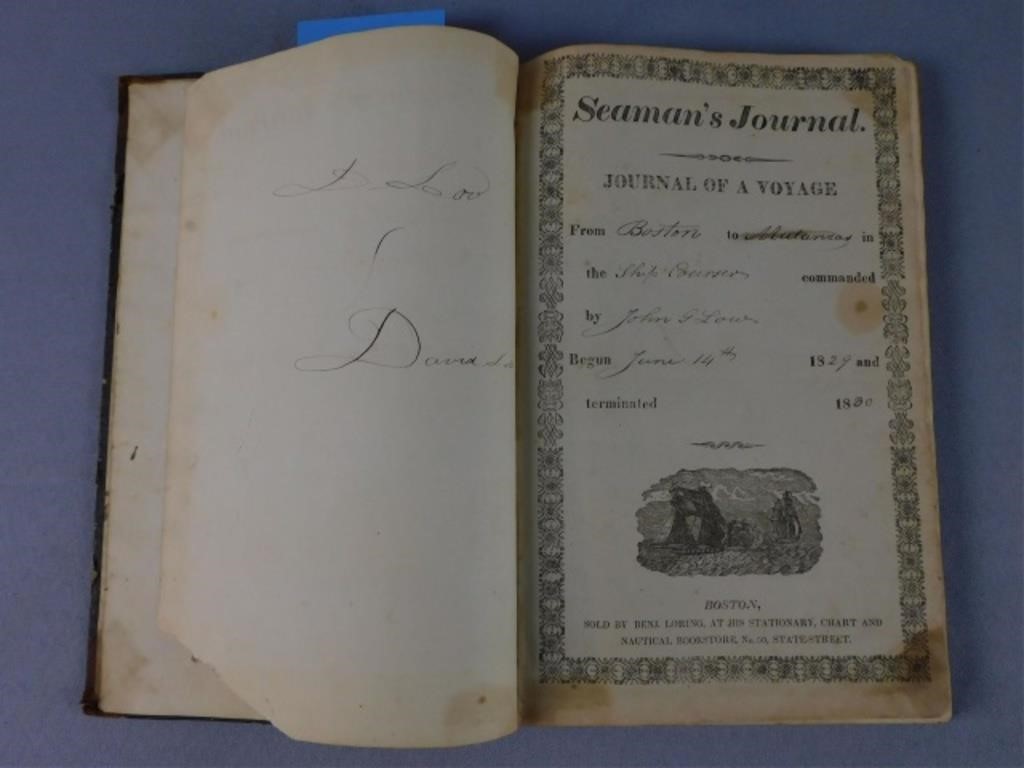 D Low
David Lo
Seaman's Journal.
JOURNAL OF A VOYAGE
From Boston to Matanzas in
the Ship Courser commanded
by John G Low
Begun June 14th 1829 and
terminated 1830
BOSTON,
SOLD BY BENJ. LORING, AT HIS STATIONARY, CHART AND
NAUTICAL BOOKSTORE, No. 50, STATE-STREET.